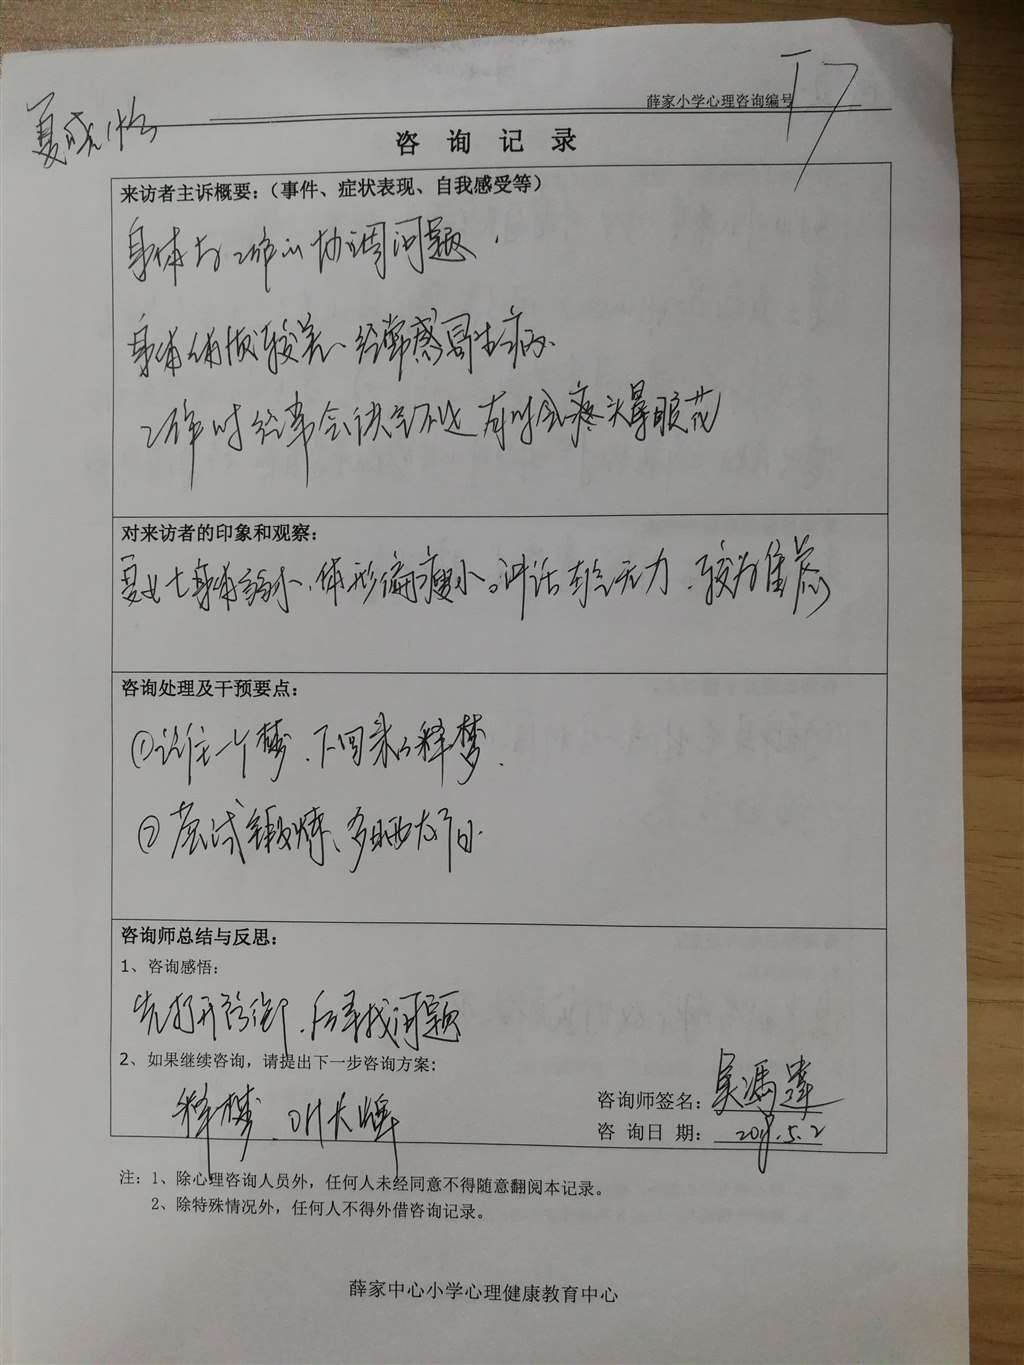 薛家小学心理咨询编号 T7
夏晓怡
咨 询 记 录
来访者主诉概要：（事件、症状表现、自我感受等）
身体与工作的协调问题.
身体 较差、经常感冒生病.
工作时经常会 有时会疼头晕眼花
对来访者的印象和观察：
夏女士身体弱小、体形偏瘦小。讲话有气无力、较为焦虑
咨询处理及干预要点：
①记住一个梦、下回来的释梦.
②尝试锻炼、多晒太阳.
咨询师总结与反思：
1、咨询感悟：
先打开 、后寻找问题
2、如果继续咨询，请提出下一步咨询方案：
释梦、OH卡牌
咨询师签名：吴冯
咨 询日 期： 2019.5.2
注：1、除心理咨询人员外，任何人未经同意不得随意翻阅本记录。
2、除特殊情况外，任何人不得外借咨询记录。
薛家中心小学心理健康教育中心